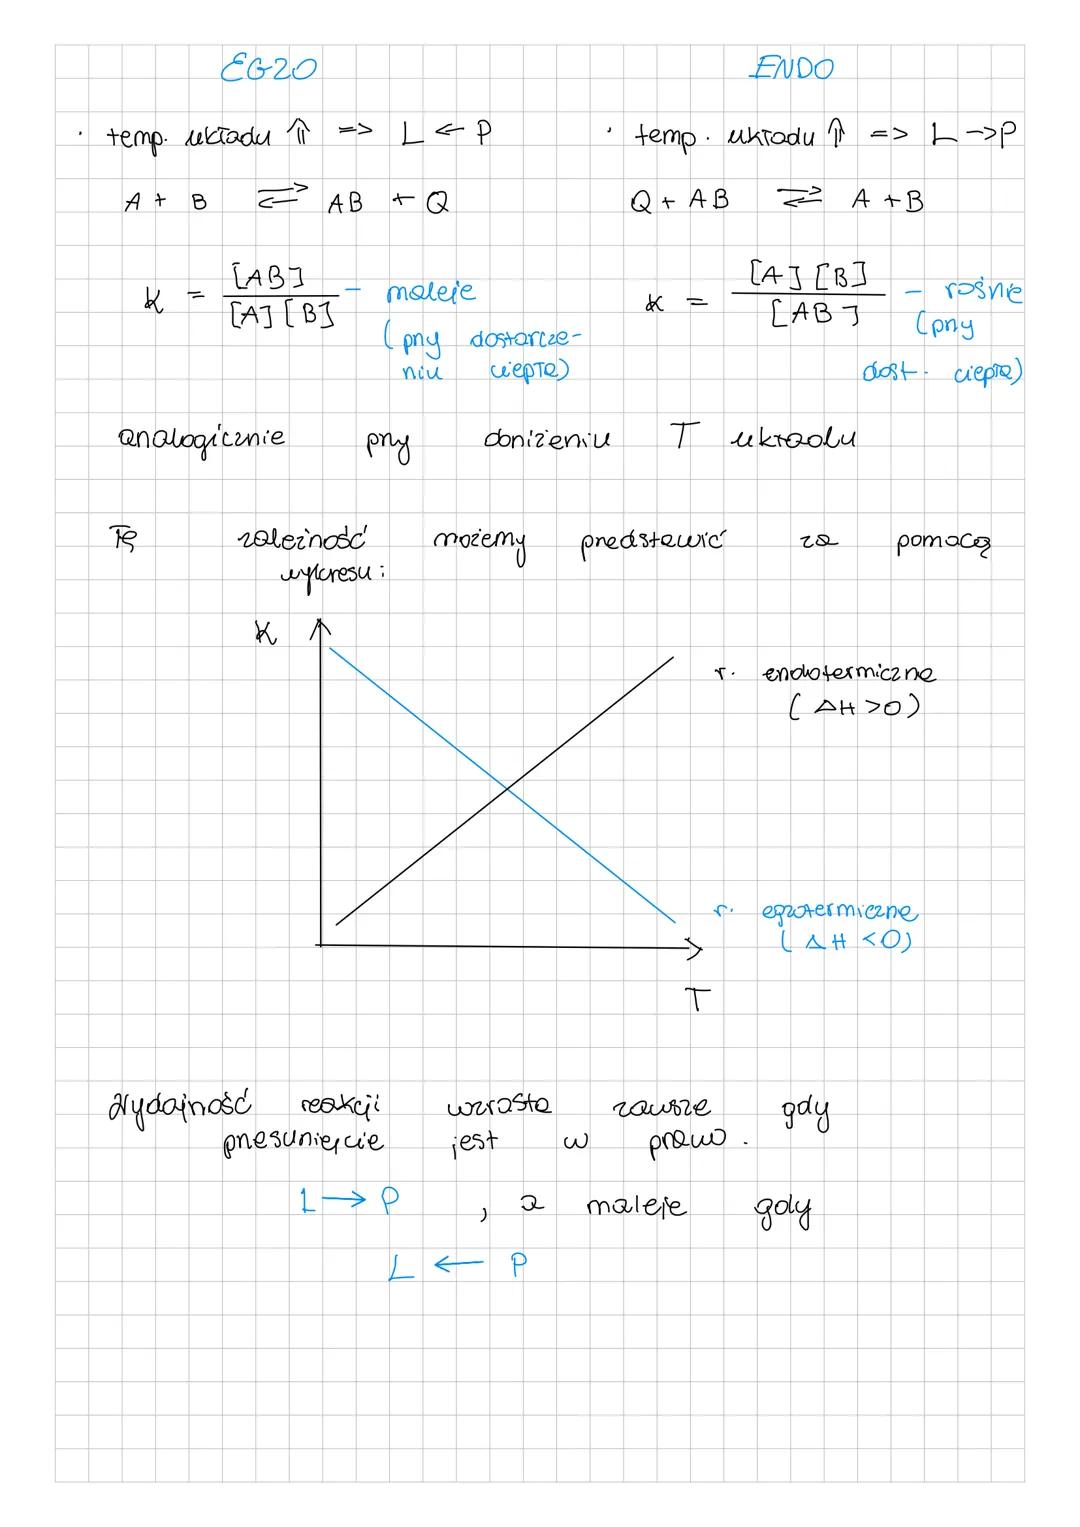 EGZO ENDO
· temp. układu ⇑ => L ← P · temp. układu ⇑ => L -> P
A + B ⇄ AB + Q Q + AB ⇄ A + B
K = [AB] / [A] [B] - maleje (przy dostarcze-niu ciepła) K = [A] [B] / [AB] - rośnie (przy dost. ciepła)
analogicznie przy obniżeniu T układu
Tę zależność możemy przedstawić za pomocą
wykresu:
K
r. endotermiczne
(ΔH >0)
r. egzotermiczne
(ΔH <0)
T
Wydajność reakcji wzrasta zawsze gdy
przesunięcie jest w prawo.
L → P , a maleje gdy
L ← P